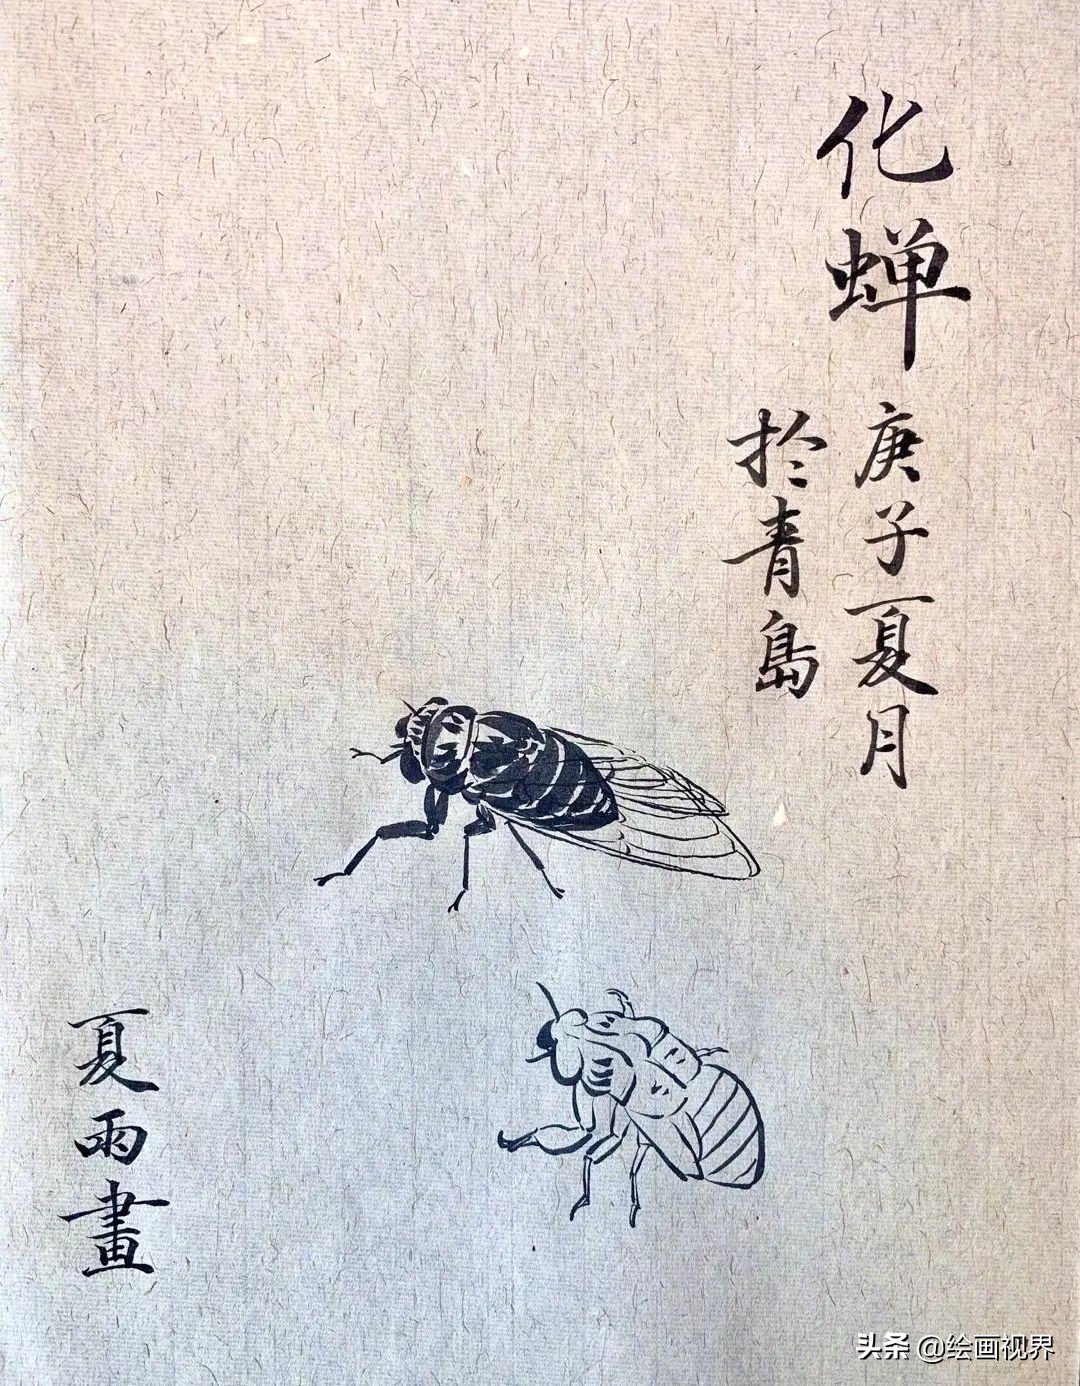 化蝉
庚子夏月
於青島
夏雨畫
头条 @绘画视界